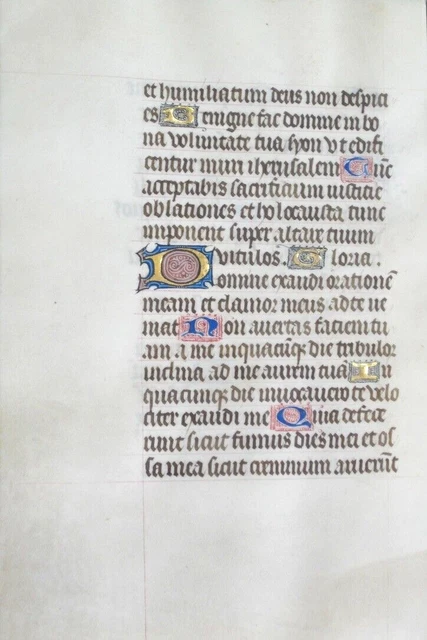 et humiliatum deus non despici
es Benigne fac domine in bo
na voluntate tua syon vt edifi
centur muri iherusalem Tūc
acceptabis sacrificium iusticie
oblationes et holocausta tunc
imponent super altare tuum
vitulos. Gloria.
Domine exaudi orationē
meam et clamor meus ad te ue
niat Non auertas faciem tu
am a me in quacūqȝ die tribulor
inclina ad me aurem tuā In
quacūqȝ die inuocauero te velo
citer exaudi me Quia defece
runt sicut fumus dies mei et os
sa mea sicut cremium aruerūt